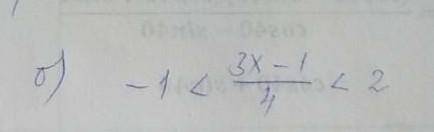 б) -1 < \frac{3x-1}{4} < 2